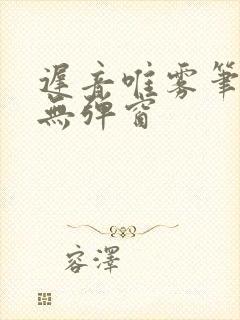 遲音唯雾筆
無弹窗
容澤